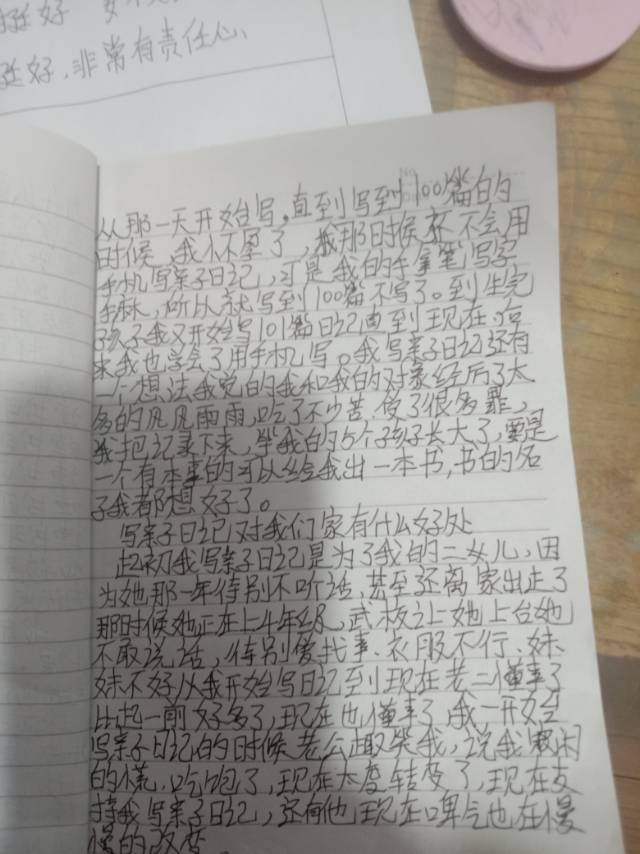 挺好
挺好,非常有责任心、
从那一天开始写。直到写到100篇的
时候,我怀孕了,我那时候还不会用
手机写亲子日记,可是我的手拿笔写字
手麻,所以就写到100篇不写了。到生完
孩子我又开始写101篇日记由到现在,后
来我也学会了用手机写。我写亲子日记还有
一个想法我觉的我和我的对象经历了太
多的风风雨雨,吃了不少苦,受了很多罪,
我把记录下来,等我的5个孩子长大了,要是
一个有本事的可以给我出一本书,书的名
子我都想好了。
写亲子日记对我们家有什么好处
起初我写亲子日记是为了我的二女儿,因
为她那一年特别不听话,甚至还离家出走了
那时候她正在上4年级,武校让她上台她
不敢说话,特别爱找事、衣服不行、妹
妹不好从我开始写日记到现在老二懂事了
比起一前好多了,现在也懂事了,我一开始
写亲子日记的时候老公趣笑我,说我濑闲
的慌,吃饱了,现在太度转变了,现在支
持我写亲子日记,还有他现在啤气也在慢
慢的改变。